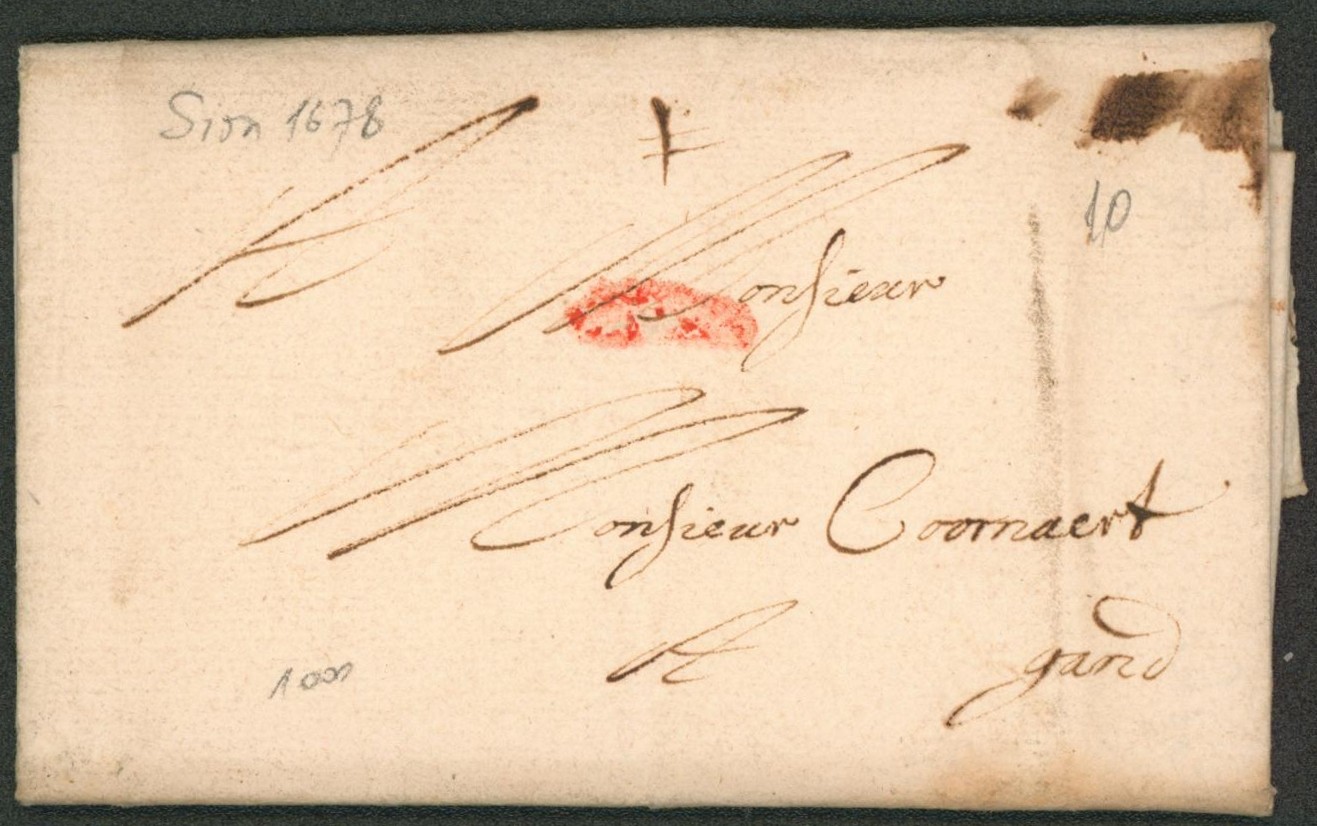 Sion 1678
10
A Monsieur
Monsieur Coornaert
A gand
1000